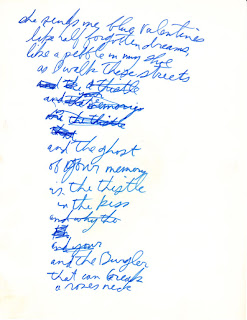 she sends me blue valentines
like half forgotten dreams
like a pebble in my shoe
as I walk these streets
the thistle
and the memories
the thistle
and the ghost
of your memory
is the thistle
in the kiss
and why the
and your
and the Burgler
that can break
a roses neck